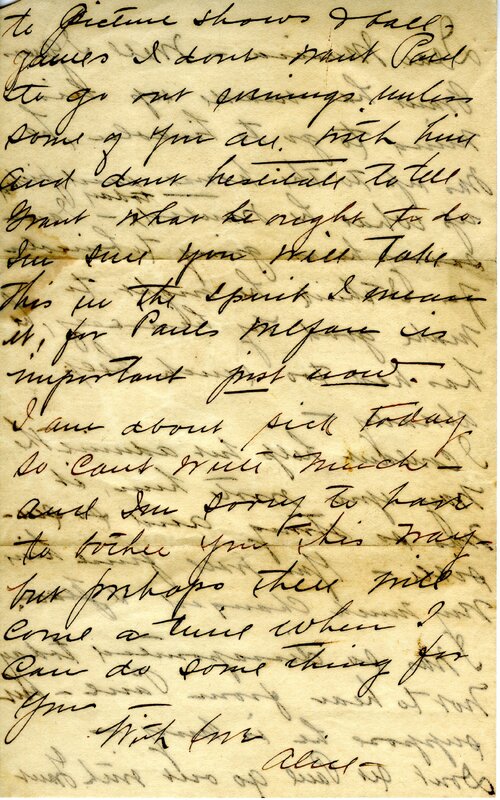 to picture shows & ball-
games I dont want Paul
to go out evenings unless
some of you are with him
and dont hesitate to tell
Grant what he ought to do.
I'm sure you will take
this in the spirit I mean
it, for Pauls welfare is
important just now.
I am about sick today
so cant write much -
and I'm sorry to have
to bother you this way -
but perhaps there will
come a time when I
can do some thing for
you
With love
Alice -